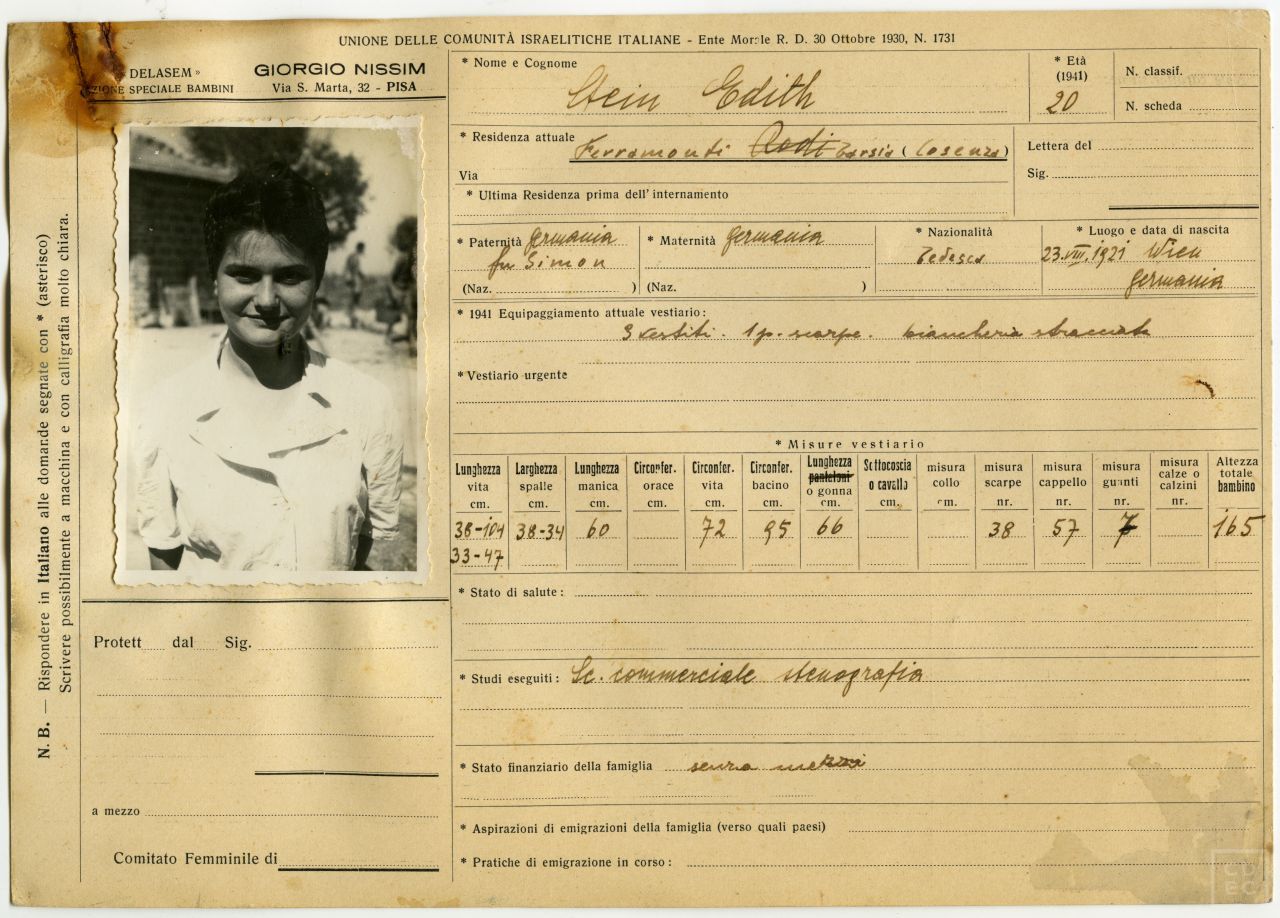 UNIONE DELLE COMUNITÀ ISRAELITICHE ITALIANE - Ente Morale R. D. 30 Ottobre 1930, N. 1731
DELASEM »
SEZIONE SPECIALE BAMBINI
GIORGIO NISSIM
Via S. Marta, 32 - PISA
N. B. — Rispondere in Italiano alle domande segnate con * (asterisco)
Scrivere possibilmente a macchina e con calligrafia molto chiara.
* Nome e Cognome Stein Edith
* Età (1941) 20
N. classif.
N. scheda
* Residenza attuale Ferramonti Tarsia (Cosenza)
Via
Lettera del
Sig.
* Ultima Residenza prima dell' internamento
* Paternità Germania
fu Simon
(Naz. )
* Maternità Germania
(Naz. )
* Nazionalità
Tedesca
* Luogo e data di nascita
23.VIII.1921 Wien
Germania
* 1941 Equipaggiamento attuale vestiario:
3 vestiti. 1 p. scarpe. biancheria stracciata
* Vestiario urgente
* Misure vestiario
Lunghezza vita cm.
Larghezza spalle cm.
Lunghezza manica cm.
Circonfer. orace cm.
Circonfer. vita cm.
Circonfer. bacino cm.
Lunghezza pantaloni o gonna cm.
Sottocoscia o cavallo cm.
misura collo cm.
misura scarpe nr.
misura cappello nr.
misura guanti nr.
misura calze o calzini nr.
Altezza totale bambino
38-104 38-34 60 72 95 66 38 57 7 165
33-47
* Stato di salute:
* Studi eseguiti: Sc. commerciale stenografia
* Stato finanziario della famiglia senza mezzi
* Aspirazioni di emigrazioni della famiglia (verso quali paesi)
* Pratiche di emigrazione in corso:
Protett dal Sig.
a mezzo
Comitato Femminile di
CDEC